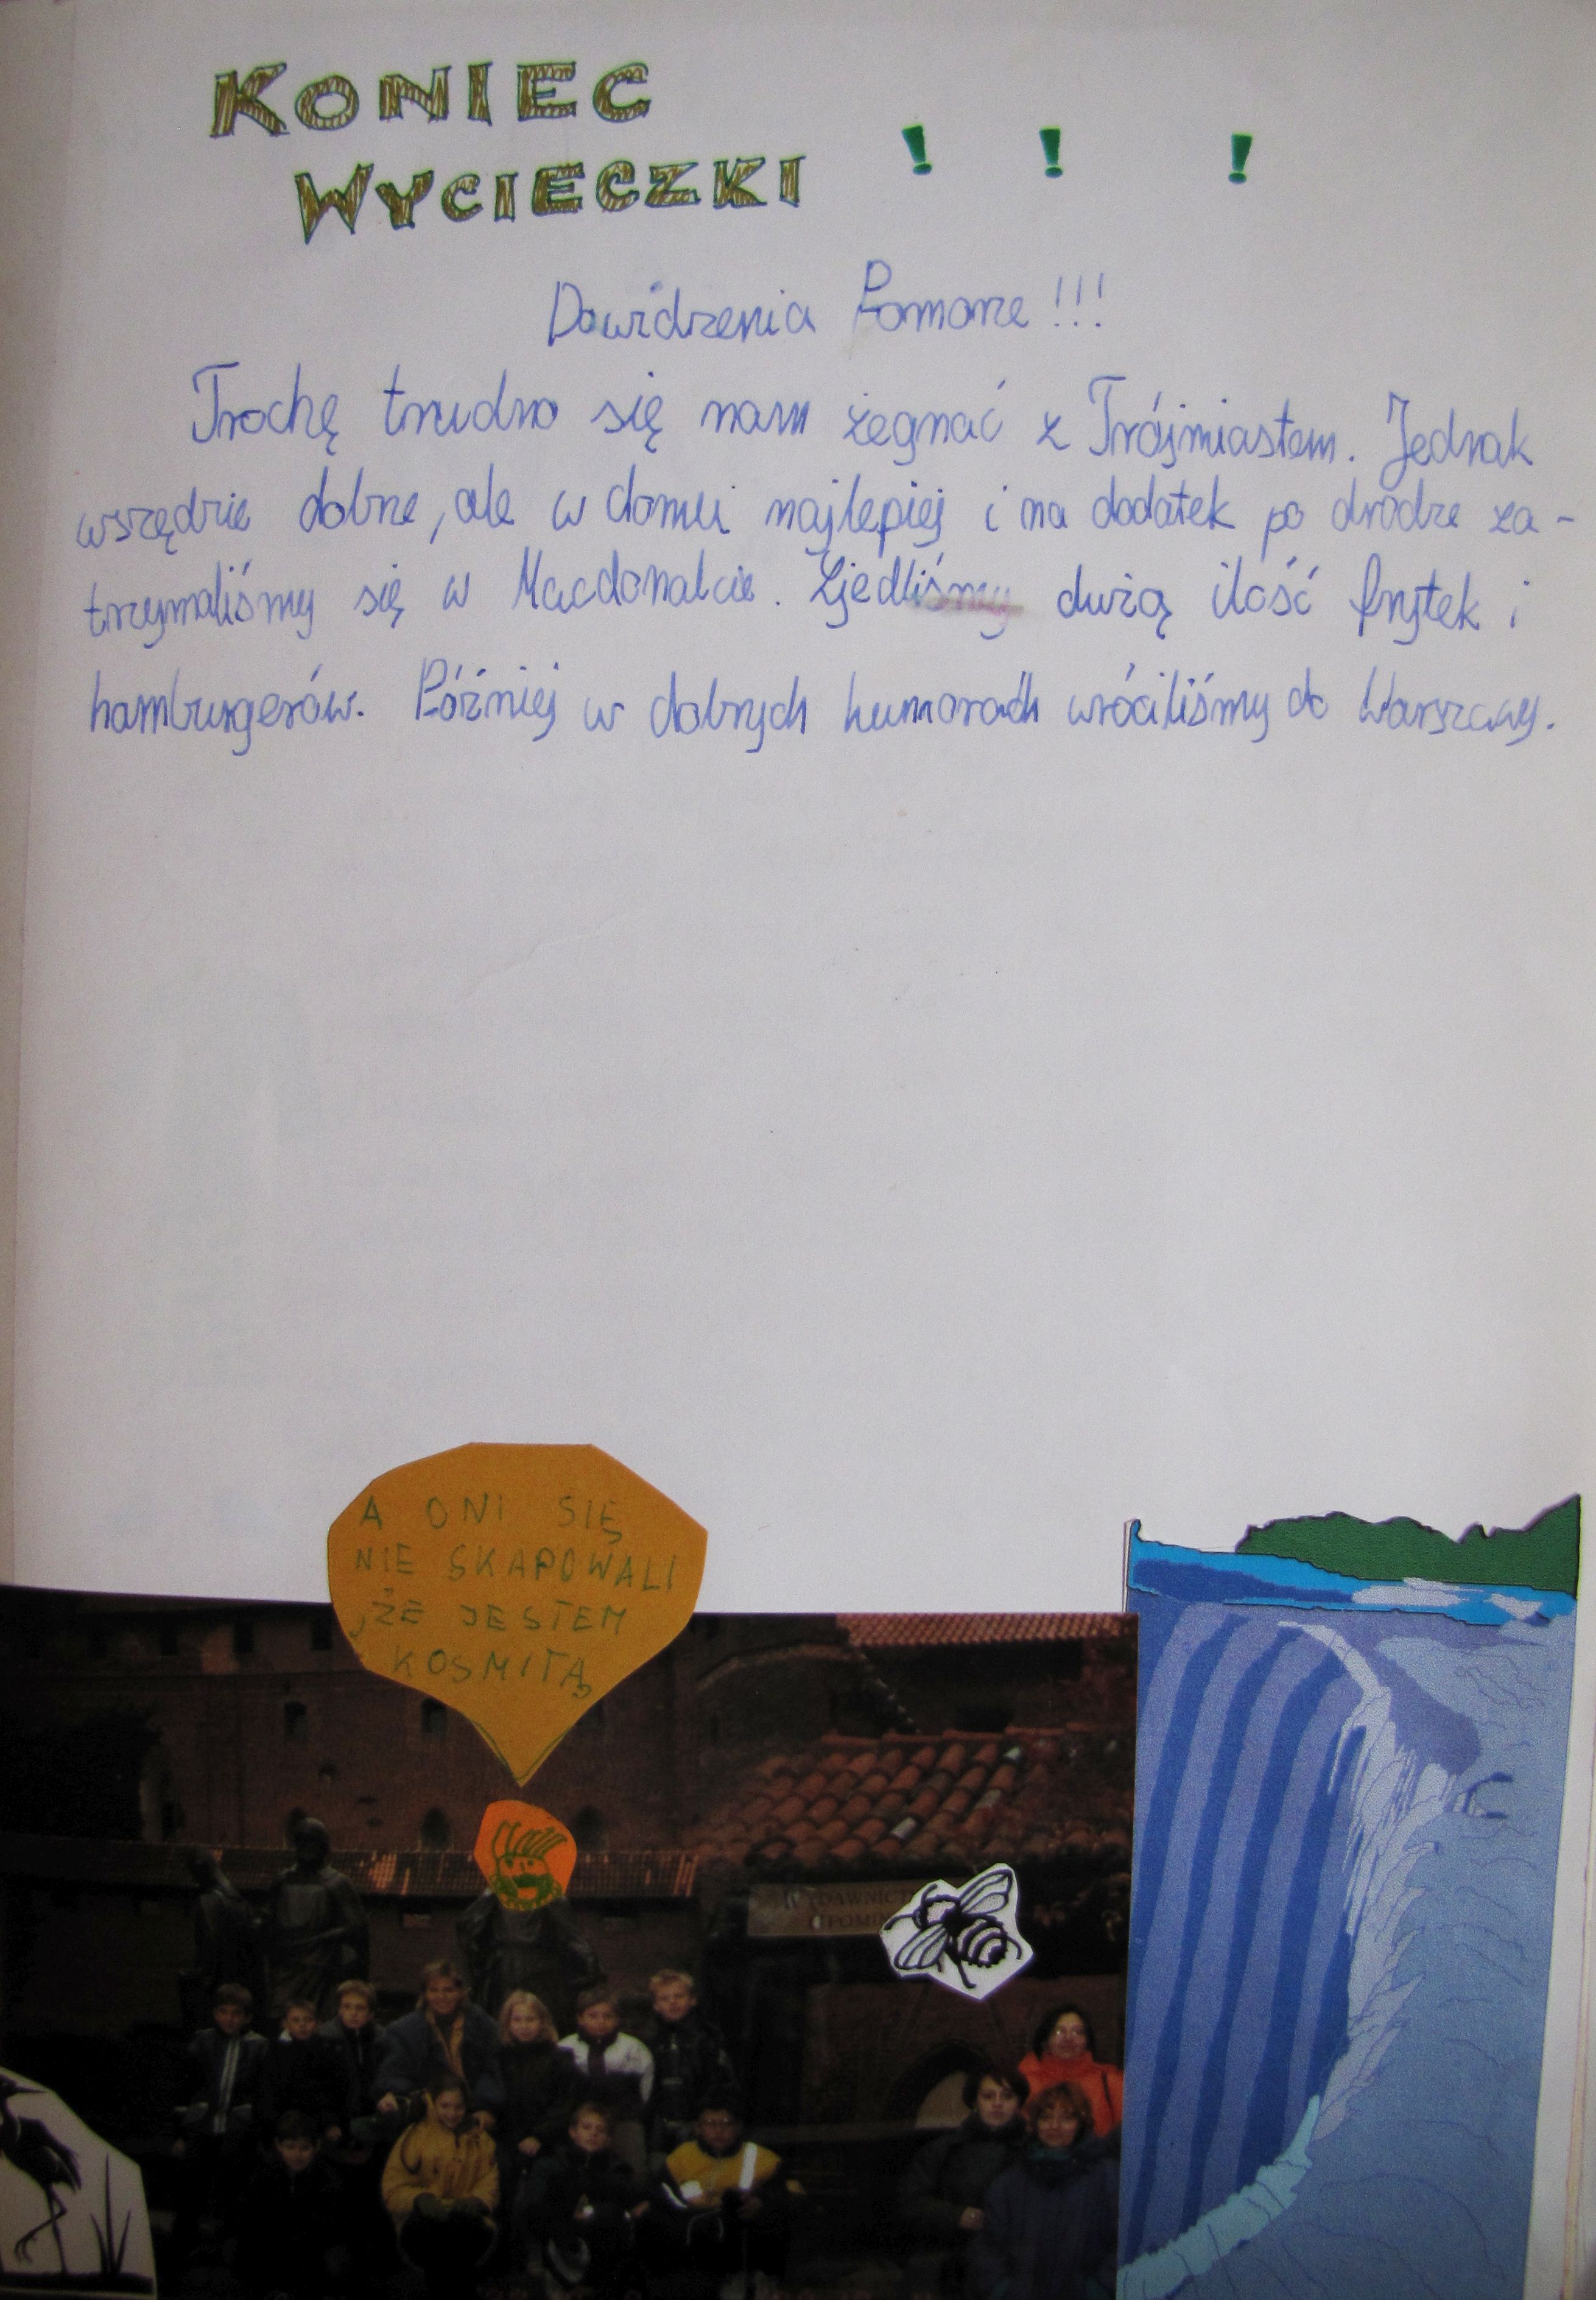 KONIEC
WYCIECZKI ! ! !
Dowidzenia Pomorze!!!
Trochę trudno się nam żegnać z Trójmiastem. Jednak
wszędzie dobrze, ale w domu najlepiej i na dodatek po drodze za-
trzymaliśmy się w Macdonalcie. Zjedliśmy dużą ilość frytek i
hamburgerów. Później w dobrych humorach wróciliśmy do Warszawy.
A ONI SIĘ
NIE SKAPOWALI
, ŻE JESTEM
KOSMITĄ
WYDAWNICT
UPOMIN